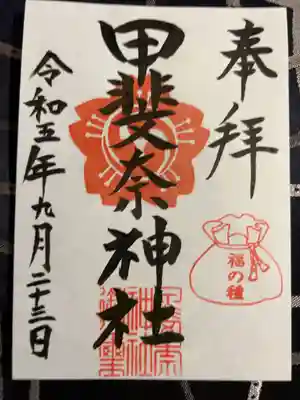 奉拝
甲斐奈神社
令和五年九月二十三日
福の種